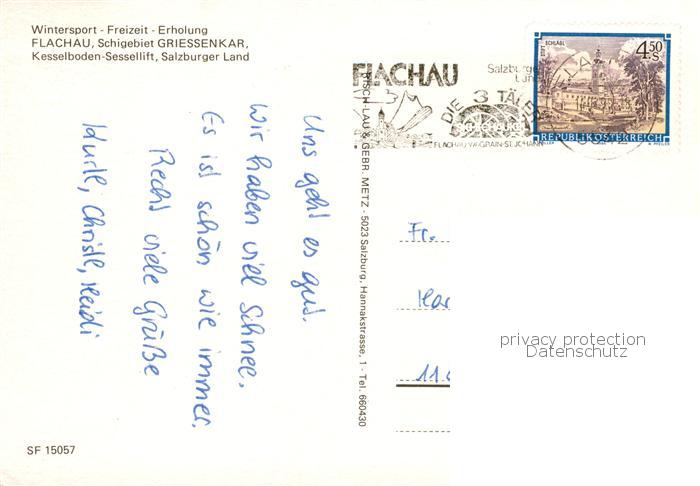 Wintersport - Freizeit - Erholung
FLACHAU, Schigebiet GRIESSENKAR,
Kesselboden-Sessellift, Salzburger Land
Uns geht es gut.
Wir haben viel Schnee.
Es ist schön wie immer.
Recht viele Grüße
Christl, Heidi
SF 15057
RISCH-LAU & GEBR. METZ - 5023 Salzburg, Hannakstrasse, 1 - Tel. 660430
FLACHAU
DIE 3 TÄLER
FLACHAU-WAGRAIN-ST. JOHANN
STIFT SCHLÄGL
4.50 S
REPUBLIK ÖSTERREICH
Fr.
privacy protection
Datenschutz